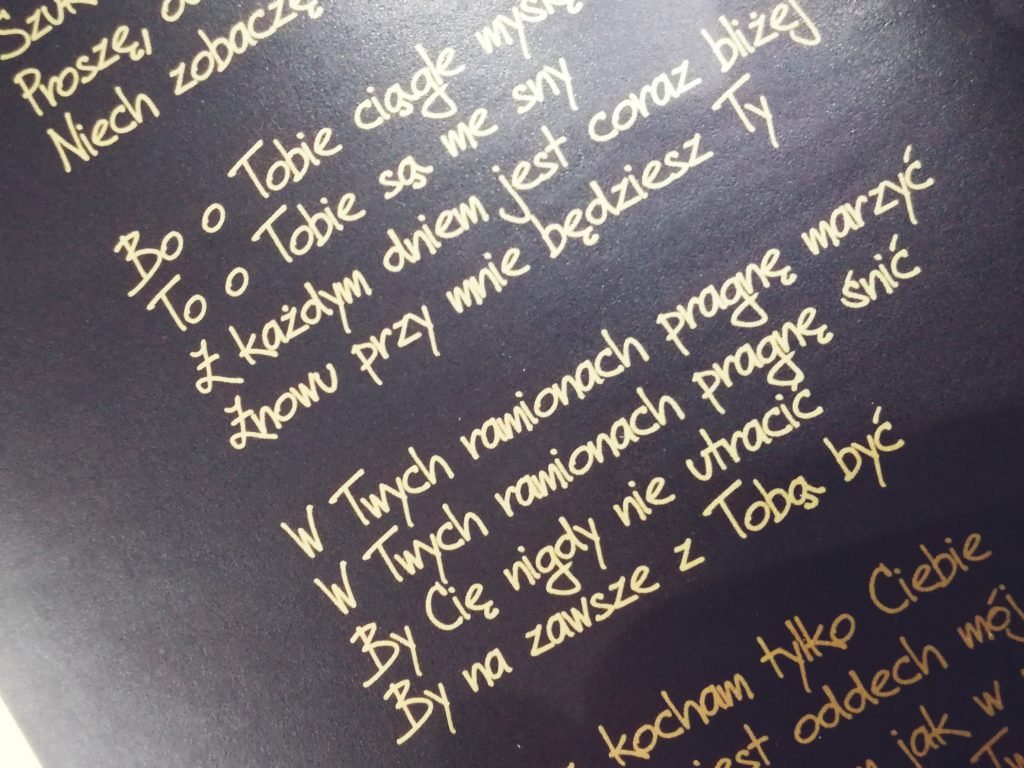 Proszę,
Niech zobaczę
Bo o Tobie ciągle myślę
To o Tobie są me sny
Z każdym dniem jest coraz bliżej
Znowu przy mnie będziesz Ty
W Twych ramionach pragnę marzyć
W Twych ramionach pragnę śnić
By Cię nigdy nie utracić
By na zawsze z Tobą być
kocham tylko Ciebie
jest oddech mój
jak w